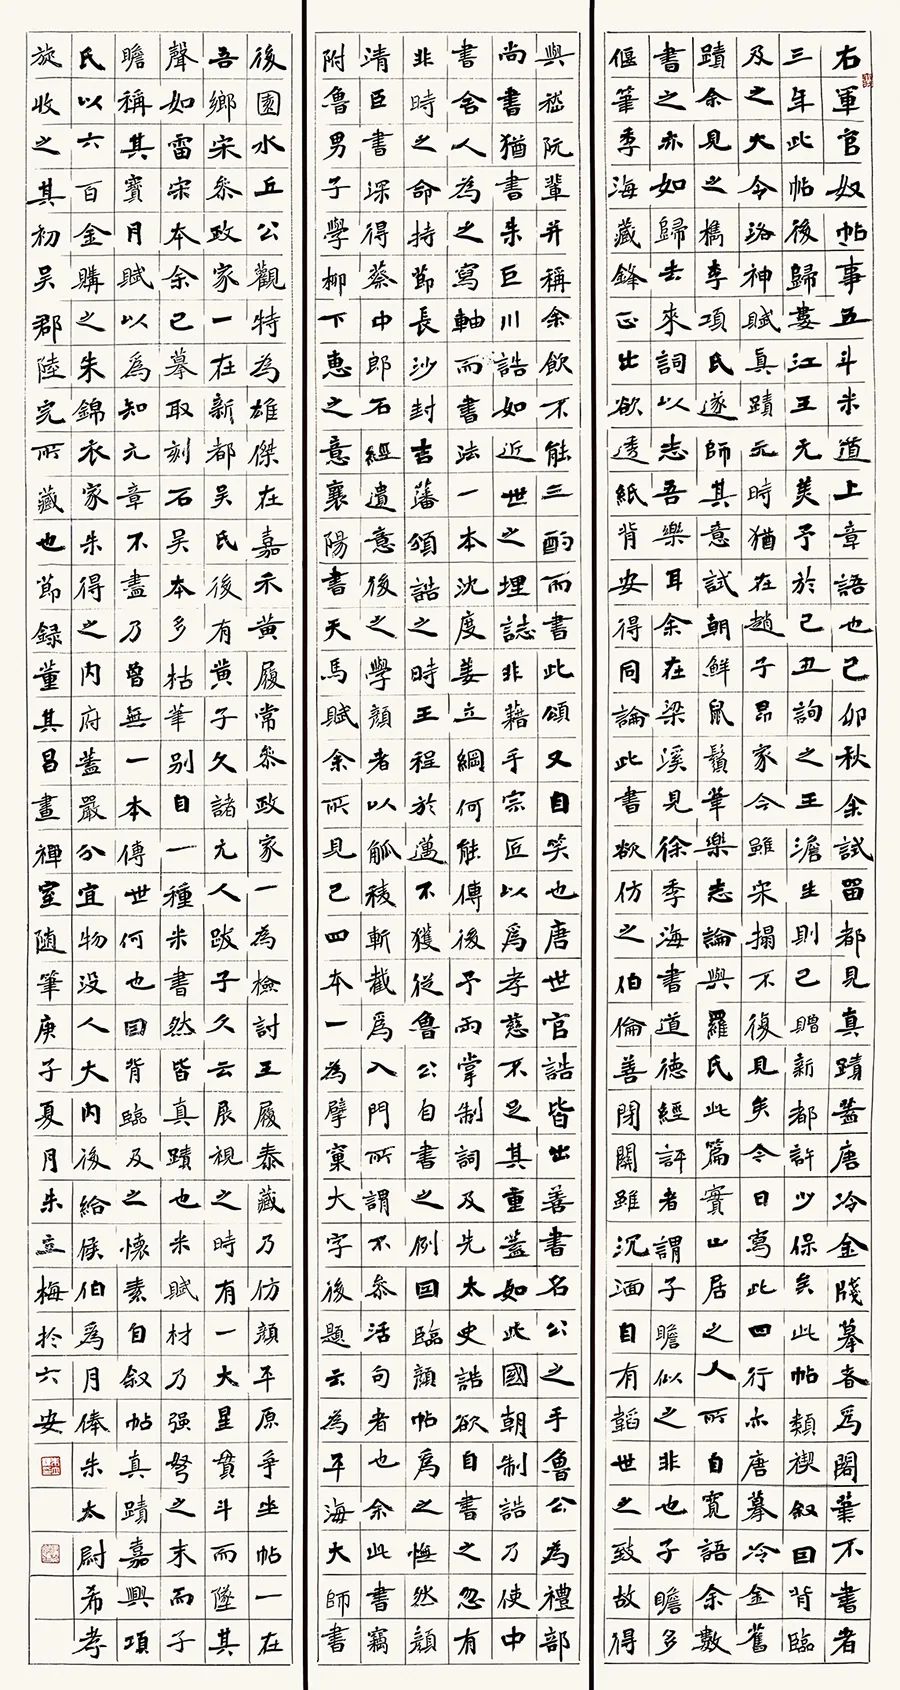 右軍官奴帖事五斗米道上章語也己卯秋余試留都見真蹟蓋唐冷金牋摹者為閣筆不書者
三年此帖後歸婁江王元美予於己丑詢之王澹生則已贈新都許少保矣此帖類禊敘囙背臨
及之大令洛神賦真蹟元時猶在趙子昂家今雖宋搨不復見矣今日寫此四行亦唐摹冷金舊
蹟余見之檇李項氏遂師其意試朝鮮鼠鬚筆樂志論與羅氏此篇實山居之人所自寬語余數
書之亦如歸去來詞以志吾樂耳余在梁溪見徐季海書道德經評者謂子瞻似之非也子瞻多
偃筆季海藏鋒正出欲透紙背安得同論此書欲仿之伯倫善閉關雖沉湎自有韜世之致故得
與嵇阮輩并稱余飲不能三酌而書此頌又自笑也唐世官誥皆出善書名公之手魯公為禮部
尚書猶書朱巨川誥如近世之埋誌非藉手宗匠以為孝慈不足其重蓋如此國朝制誥乃使中
書舍人為之寫軸而書法一本沈度姜立綱何能傳後予兩掌制詞及先太史誥欲自書之忽有
非時之命持節長沙封吉藩頒誥之時王程於邁不獲從魯公自書之例囙臨顏帖為之悔然顏
清臣書深得蔡中郎石經遺意後之學顏者以觚稜斬截為入門所謂不參活句者也余此書竊
附魯男子學柳下惠之意襄陽書天馬賦余所見已四本一為擘窠大字後題云為平海大師書
後園水丘公觀特為雄傑在嘉禾黃履常參政家一為檢討王履泰藏乃仿顏平原爭坐帖一在
吾鄉宋參政家一在新都吳氏後有黃子久諸元人跋子久云展視之時有一大星貫斗而墜其
聲如雷宋本余已摹取刻石吳本多枯筆别自一種米書然皆真蹟也米賦材乃强弩之末而子
瞻稱其寶月賦以為知元章不盡乃曾無一本傳世何也囙背臨及之懷素自敘帖真蹟嘉興項
氏以六百金購之朱錦衣家朱得之內府蓋嚴分宜物沒入大內後給侯伯為月俸朱太尉希孝
旋收之其初吳郡陸完所藏也節録董其昌畫禪室隨筆庚子夏月朱立梅於六安